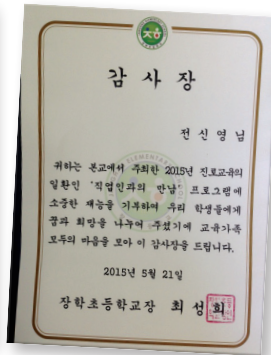 감 사 장
전 신 영 님
귀하는 본교에서 주최한 2015년 진로교육의
일환인 '직업인과의 만남' 프로그램에
소중한 재능을 기부하여 우리 학생들에게
꿈과 희망을 나누어 주셨기에 교육가족
모두의 마음을 모아 이 감사장을 드립니다.
2015년 5월 21일
장학초등학교장 최 성 희